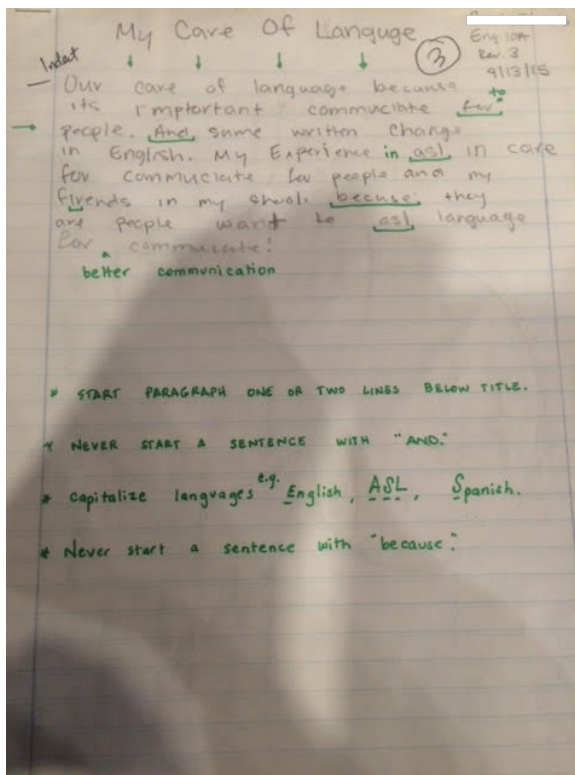 My Care Of Languge
Eng 10A
Rev. 3
9/13/15
3
Indent
Our care of language becunse
to
its Imptortant commuciate for
people. And some written change
in English. My Experience in asl in care
for commuciate for people and my
firends in my shool. becuse they
are people want to asl language
for commuicate!
better communication
* START PARAGRAPH ONE OR TWO LINES BELOW TITLE.
* NEVER START A SENTENCE WITH "AND."
* Capitalize languages e.g. English, ASL, Spanish.
* Never start a sentence with "because".